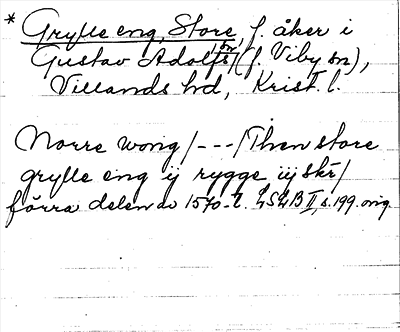 * Grylle eng, Store, f. åker i
Gustav Adolfs sn (f. Viby sn),
Villands hd, Krist. l.
Norre wong /---/ Then store
grylle eng ij rygge iij skr̄/
förra delen av 1570-t. LSLB II, s. 199. orig